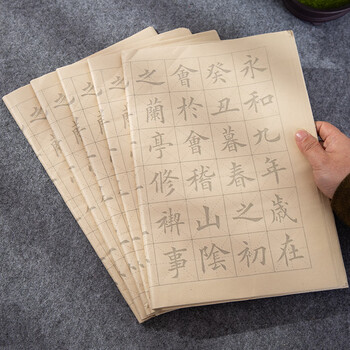 永和九年歲在
癸丑暮春之初
會於會稽山陰
之蘭亭修禊事
之
之
之
之